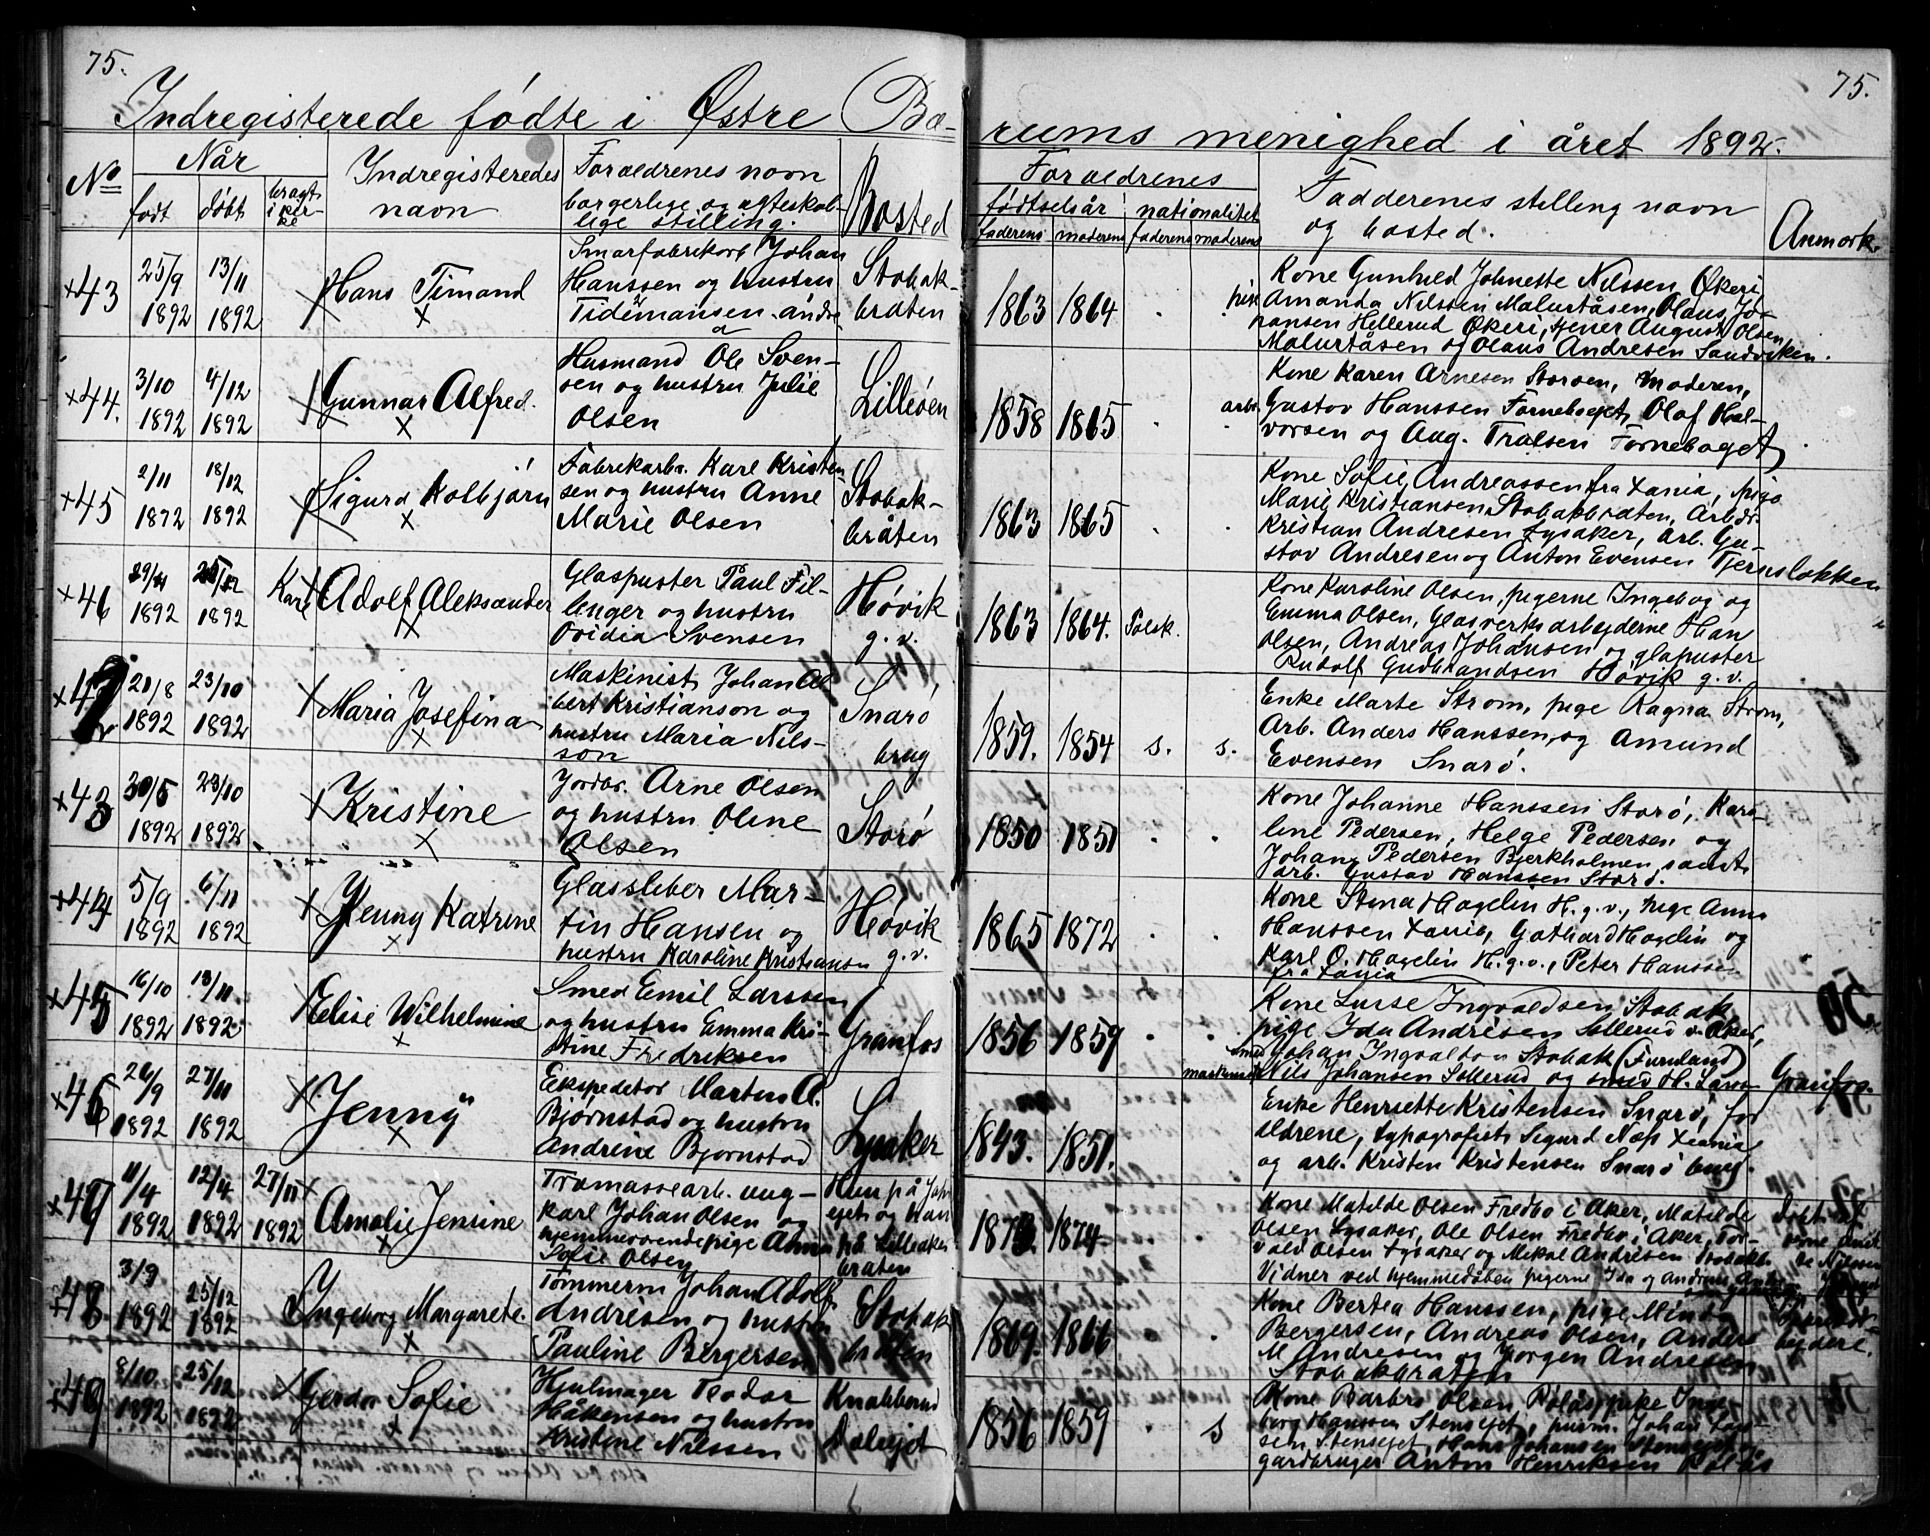 75.
75.
Indregisterede fødte i Østre Bæ-
rums menighed i året 1892.
No
Når
født
døbt
bragt i kirke
Indregisteredes navn
Foraldrenes navn
borgerlige og agteskab-
lige stilling.
Bosted
Foraldrenes
fødtselsår
nationalitet
faderens
moderens
faderens
moderens
Fadderenes stilling navn
og bosted.
Anmærk.
×43
25/9 1892
13/11 1892
Hans Timand
Johan
Hanssen og hustru
Stabak-
bråten
1863
1864
Kone Gunhild Johnette Nilssen Økeri
Amanda Nilssen Malurtåsen, Olaus Jo-
hansen Hellerud Økeri, tjener August Olsen
Malurtåsen og Olaus Andresen Sandviken.
×44.
3/10 1892
4/12 1892
Gunnar Alfred.
Husmand Ole Sven-
sen og hustru Julie
Olsen
Lilleøen
1858
1865
arb.
Kone Karen Arnesen Storøen, Moderen,
Gustav Hanssen Forneboget, Olaf Hal-
vorsen og Aug. Trulsen Forneboget
×45
2/11 1872
18/12 1892
Sigurd Kolbjørn
Fabrikarb. Karl Kristen
sen og hustru Anne
Marie Olsen
Stabak-
bråten
1863
1865
Kone Sofie Andreassen fra Xania, pige
Marie Kristiansen Stabakbråten, Arbdr.
Kristian Andresen Lysaker, arb. Gu-
stav Andresen og Anton Evensen Tjernsløkken
×46
29/11 1892
1892
Karl Adolf Aleksander
Glaspuster Paul Fil-
linger og hustru
Ovidia Svensen
Høvik
g. v.
1863
1864.
Polsk.
Kone Karoline Olsen, pigerne Ingebog og
Emma Olsen, Glasverksarbejderne Han
Olsen, Andreas Johansen og glapuster
Rudolf Gudbrandsen Høvik g. v.
21/8 1892
23/10 1892
Maria Josefina
Maskinist Johan Al-
bert Kristianson og
hustru Maria Nils-
son
Snarø
brug
1859.
1854
s.
s.
Enke Marte Strøm, pige Ragna Strøm,
Arb. Anders Hanssen, og Amund
Evensen Snarø.
×43
1892
23/10 1892
Kristine
Jordbr. Arne Olsen
og hustru Oline
Olsen
Storø
1850
1851
Kone Johanne Hanssen Storø, Karo
line Pedersen, Helge Pedersen og
Johan Pedersen Bjerkholmen samt
arb. Gustav Hanssen Storø.
×44
5/9 1892
6/11 1892
Jenny Katrine
Glassliber Mar-
tin Hansen og
hustru Karoline Kristiansn
Høvik
g. v.
1865
1872
Kone Stina Hagelin H. g. v., pige Anna
Hanssen Xania, Gothard Hagelin og
Karl O. Hagelin H. g. v., Peter Hansse
fra Xania
×45
16/10 1892
13/11 1892
Elise Wilhelmine
Smed Emil Larssen
og hustru Emma Kri-
stine Fredriksen
Granfos
1856
1859
Kone Lurse Ingvaldsen Stabak
pige Ida Andresen Sollerud v. Aker,
smed Johan Ingvaldsn Stabak (Furuland)
maskinist Nils Johansen Sollerud og smed H. Larss
Granfos.
×46
26/9 1892
27/11 1892
Jenny
Ekspeditør Martin A.
Bjørnstad og hustru
Andrine Bjørnstad
Lysaker
1843.
1851.
Enke Henriette Kristensen Snarø, for
ældrene, typografist Sigurd Næs Xania
og arb. Kristen Kristensen Snarø brug.
×47
11/4 1892
12/4 1892
27/11 1892
Amalie Jensine
Træmassearb. ung-
karl Johan Olsen og
hjemmeværendepige Anna
Sofie Olsen
1873
1874
Kone Matilde Olsen Fredbo i Aker, Matilde
Olsen Lysaker, Ole Olsen Fredbo i Aker, Tor-
vald Olsen Lysaker og Mikal Andresen
Vidner ved hjemmedåben pigerne Ida og
×48
3/9 1892
25/12 1892
Ingeborg Margarete.
Tømmerm Johan Adolf
Andresen og hustru
Pauline Bergersen
Stabak
bråten
1869.
1866
Kone Bertea Hanssen, pige Mina
Bergersen, Andreas Olsen, Anders
M Andresen og Jørgen Andresen
Stabakbråten
×49
8/10 1892
25/12 1892
Gerda Sofie
Hjulmager Teodor
Håkensen og hustru
Kristine Nilssen
Knabberud
Dalsejet
1856
1859
s
Kone Barbro Olsen, pike Inge
borg Hanssen Stensejet, murm. Johan Lars
sen Stensejet, Hans Johansen Stensejet og
gardbruger Anton Henriksen